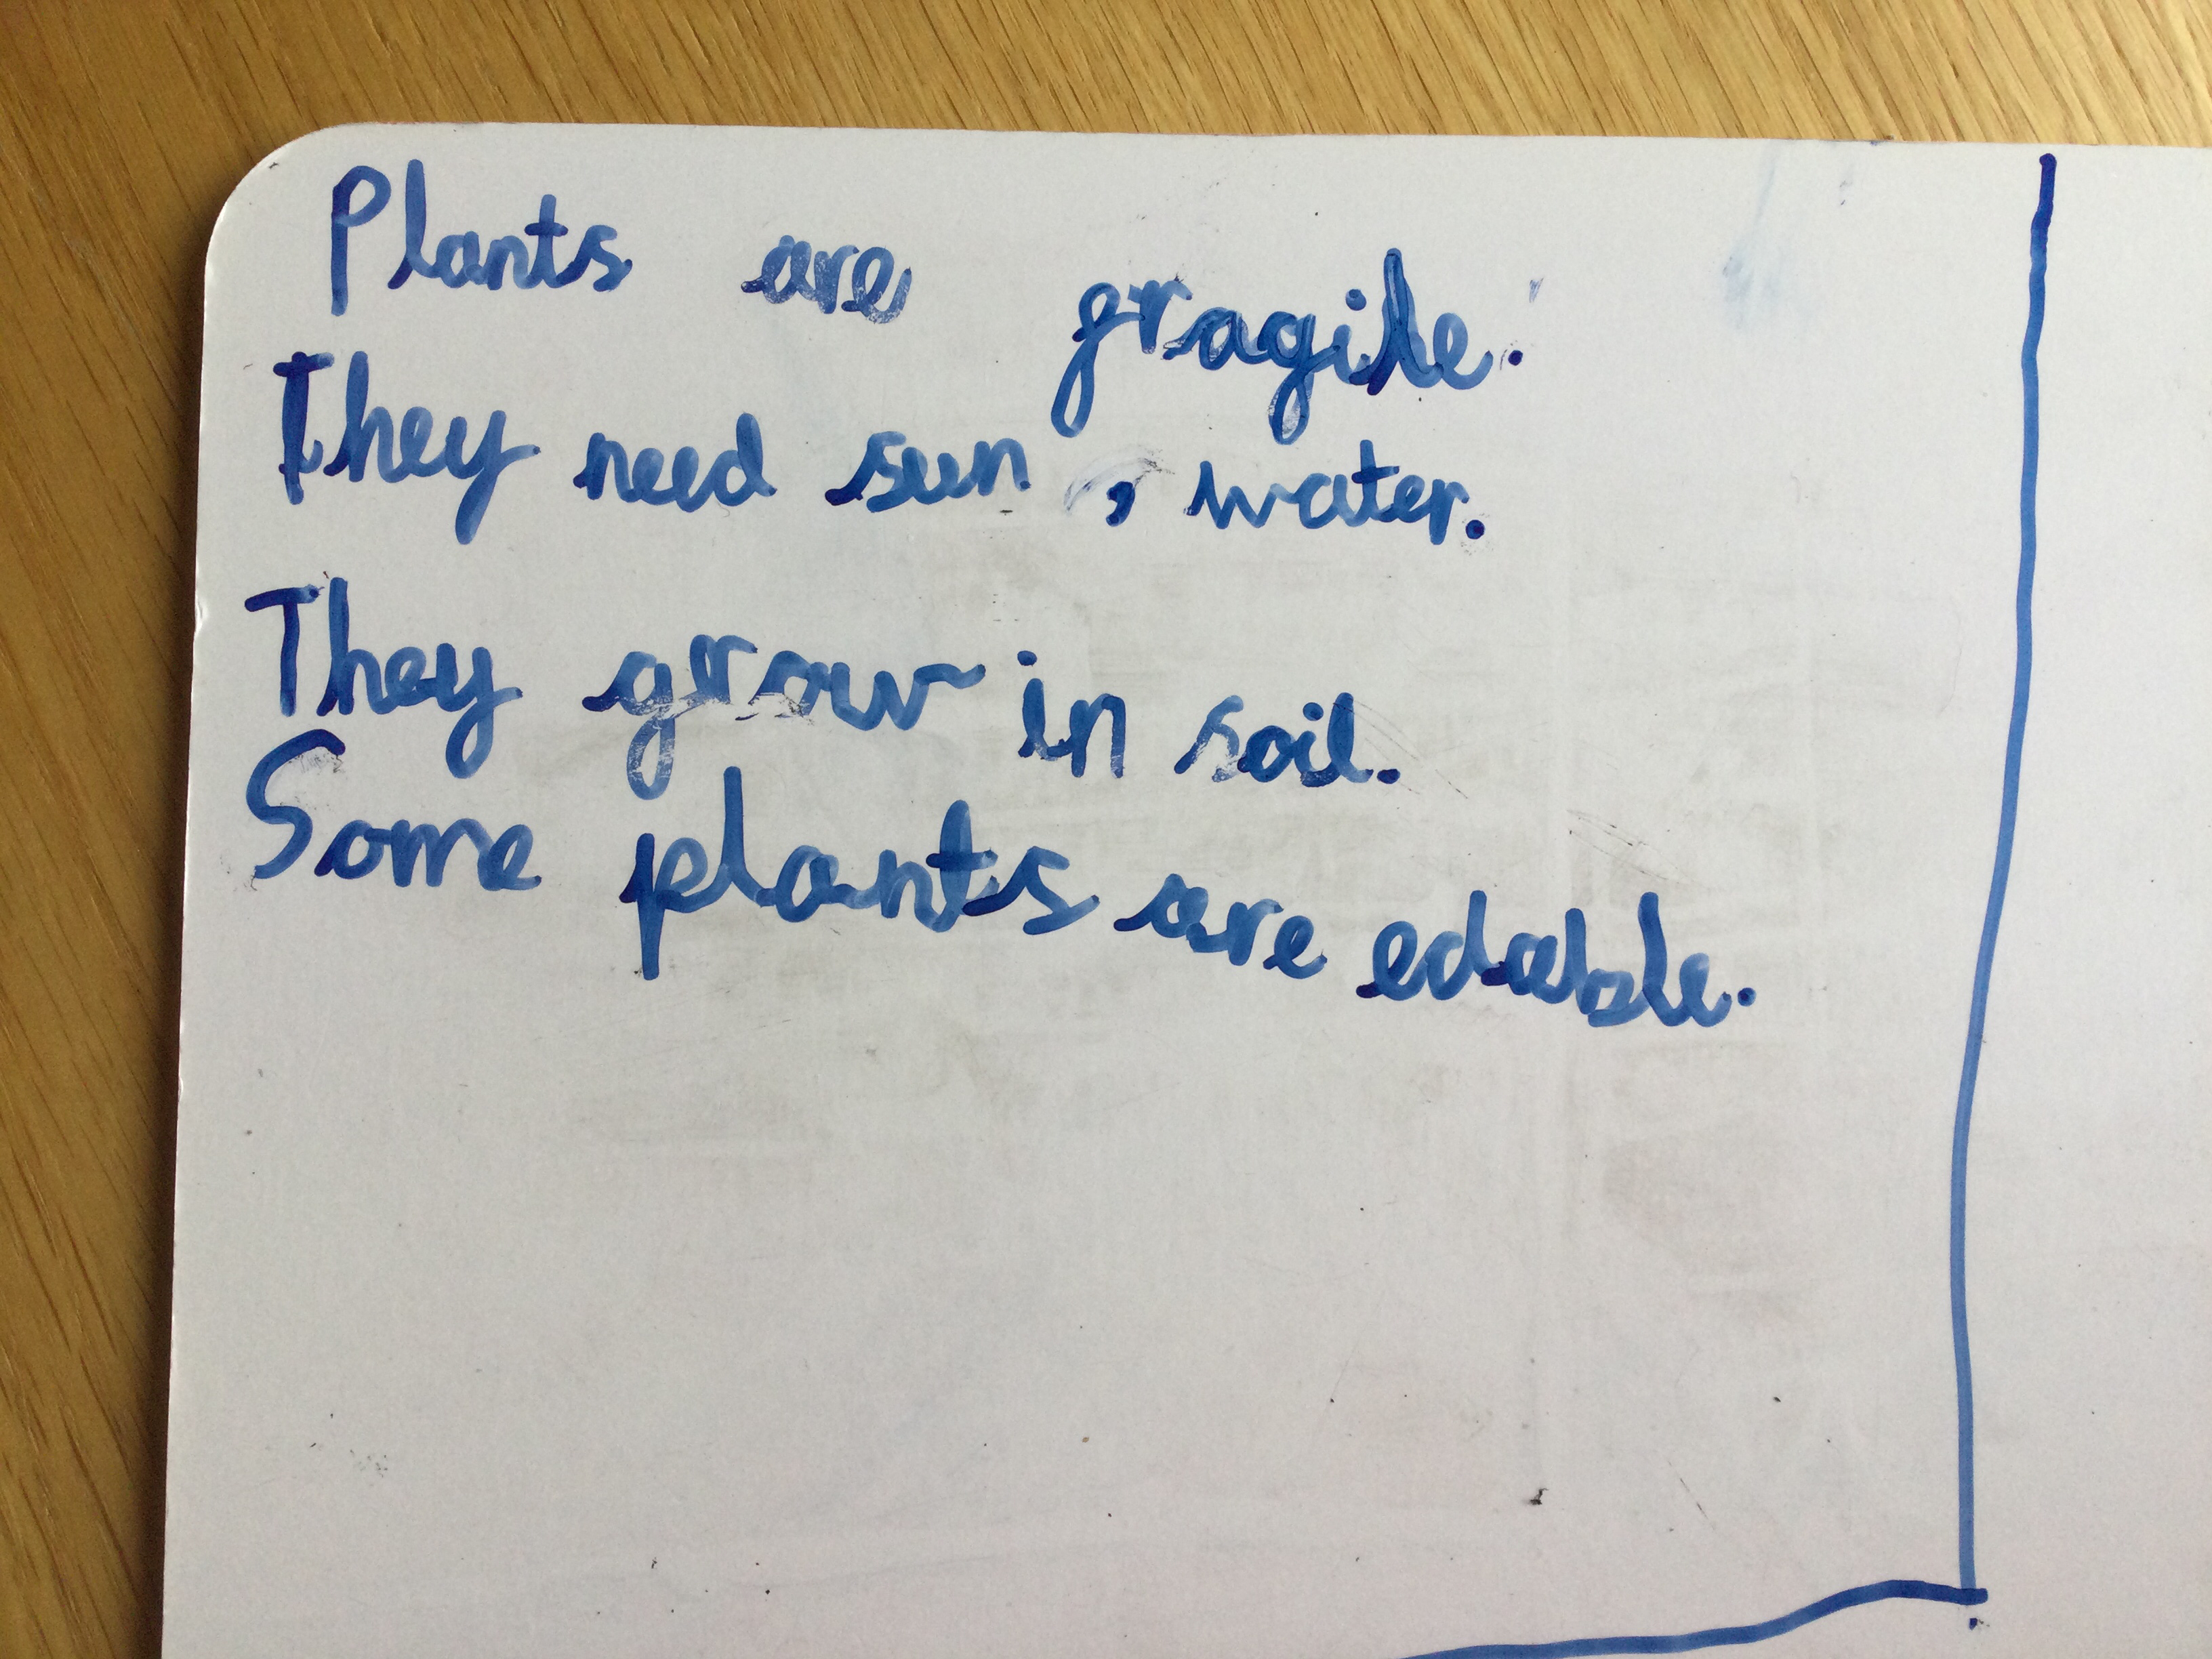 Plants are fragile.
They need sun, water.
They grow in soil.
Some plants are edable.